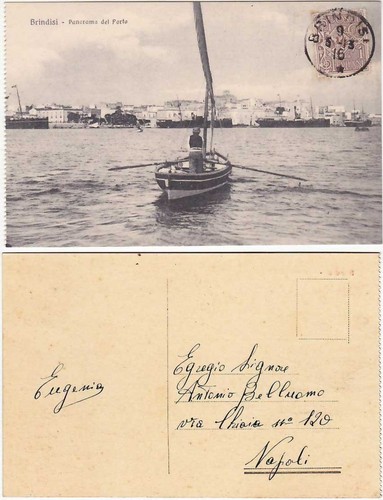 Brindisi - Panorama del Porto
BRINDISI
9
5-13
16
Eugenia
Egregio Signore
Antonio Belluomo
via Chiaia nº 120
Napoli